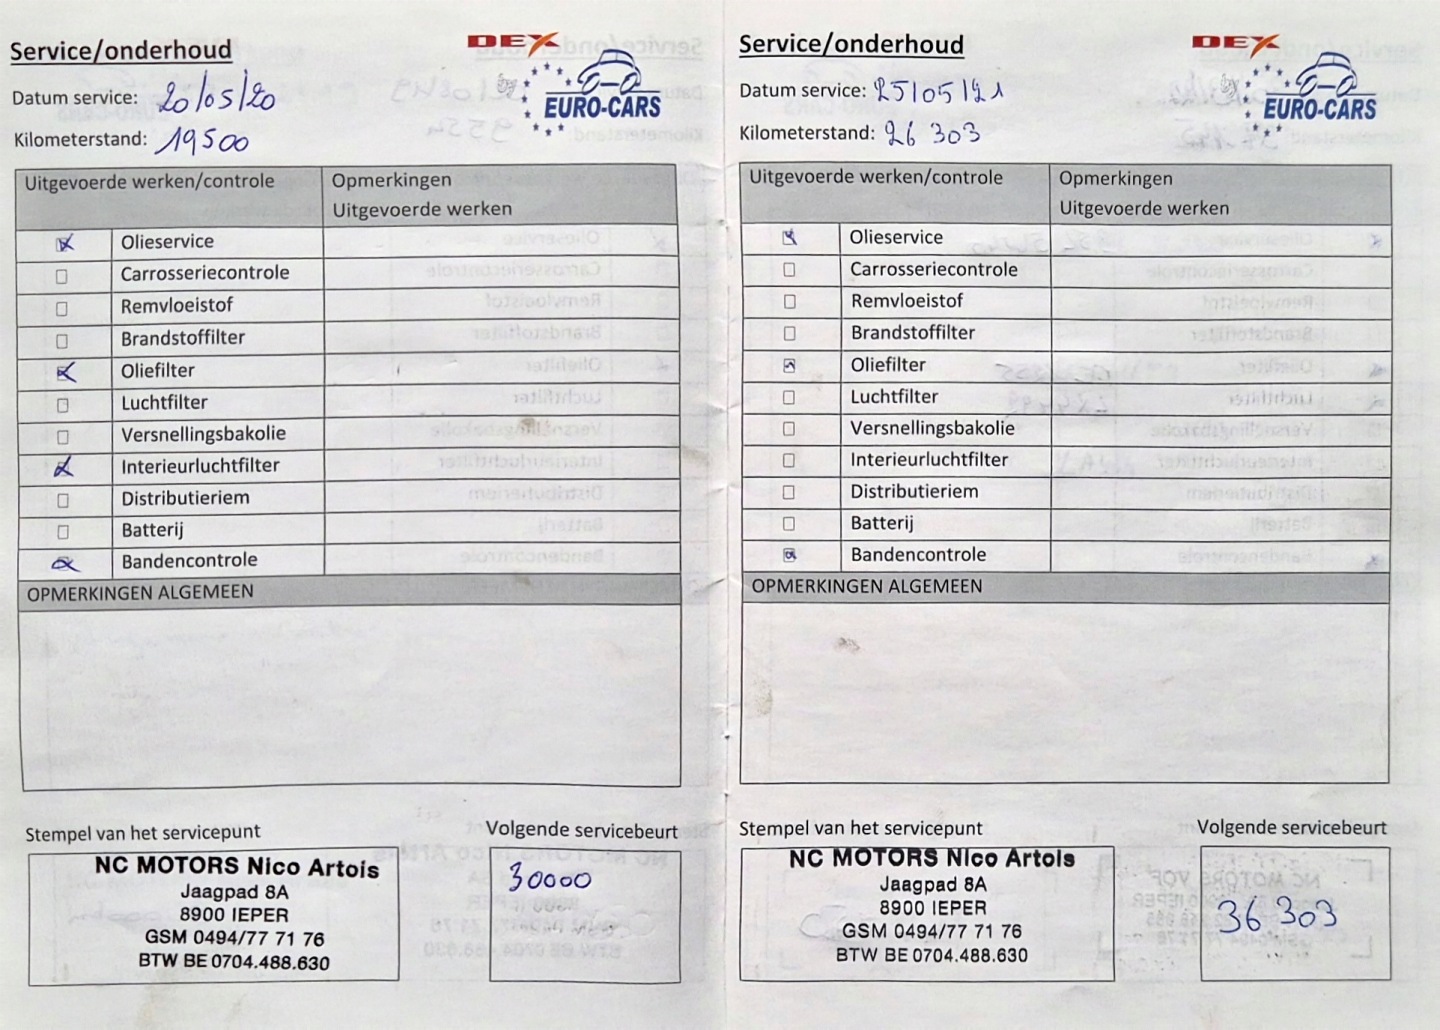 Service/onderhoud
DEX
EURO-CARS
Datum service: 20/05/20
Kilometerstand: 19500
Uitgevoerde werken/controle
Opmerkingen
Uitgevoerde werken
Olieservice
Carrosseriecontrole
Remvloeistof
Brandstoffilter
Oliefilter
Luchtfilter
Versnellingsbakolie
Interieurluchtfilter
Distributieriem
Batterij
Bandencontrole
OPMERKINGEN ALGEMEEN
Stempel van het servicepunt
Volgende servicebeurt
NC MOTORS Nico Artois
Jaagpad 8A
8900 IEPER
GSM 0494/77 71 76
BTW BE 0704.488.630
30000
Service/onderhoud
DEX
EURO-CARS
Datum service: 25/05/21
Kilometerstand: 26 303
Uitgevoerde werken/controle
Opmerkingen
Uitgevoerde werken
Olieservice
Carrosseriecontrole
Remvloeistof
Brandstoffilter
Oliefilter
Luchtfilter
Versnellingsbakolie
Interieurluchtfilter
Distributieriem
Batterij
Bandencontrole
OPMERKINGEN ALGEMEEN
Stempel van het servicepunt
Volgende servicebeurt
NC MOTORS Nico Artois
Jaagpad 8A
8900 IEPER
GSM 0494/77 71 76
BTW BE 0704.488.630
36 303